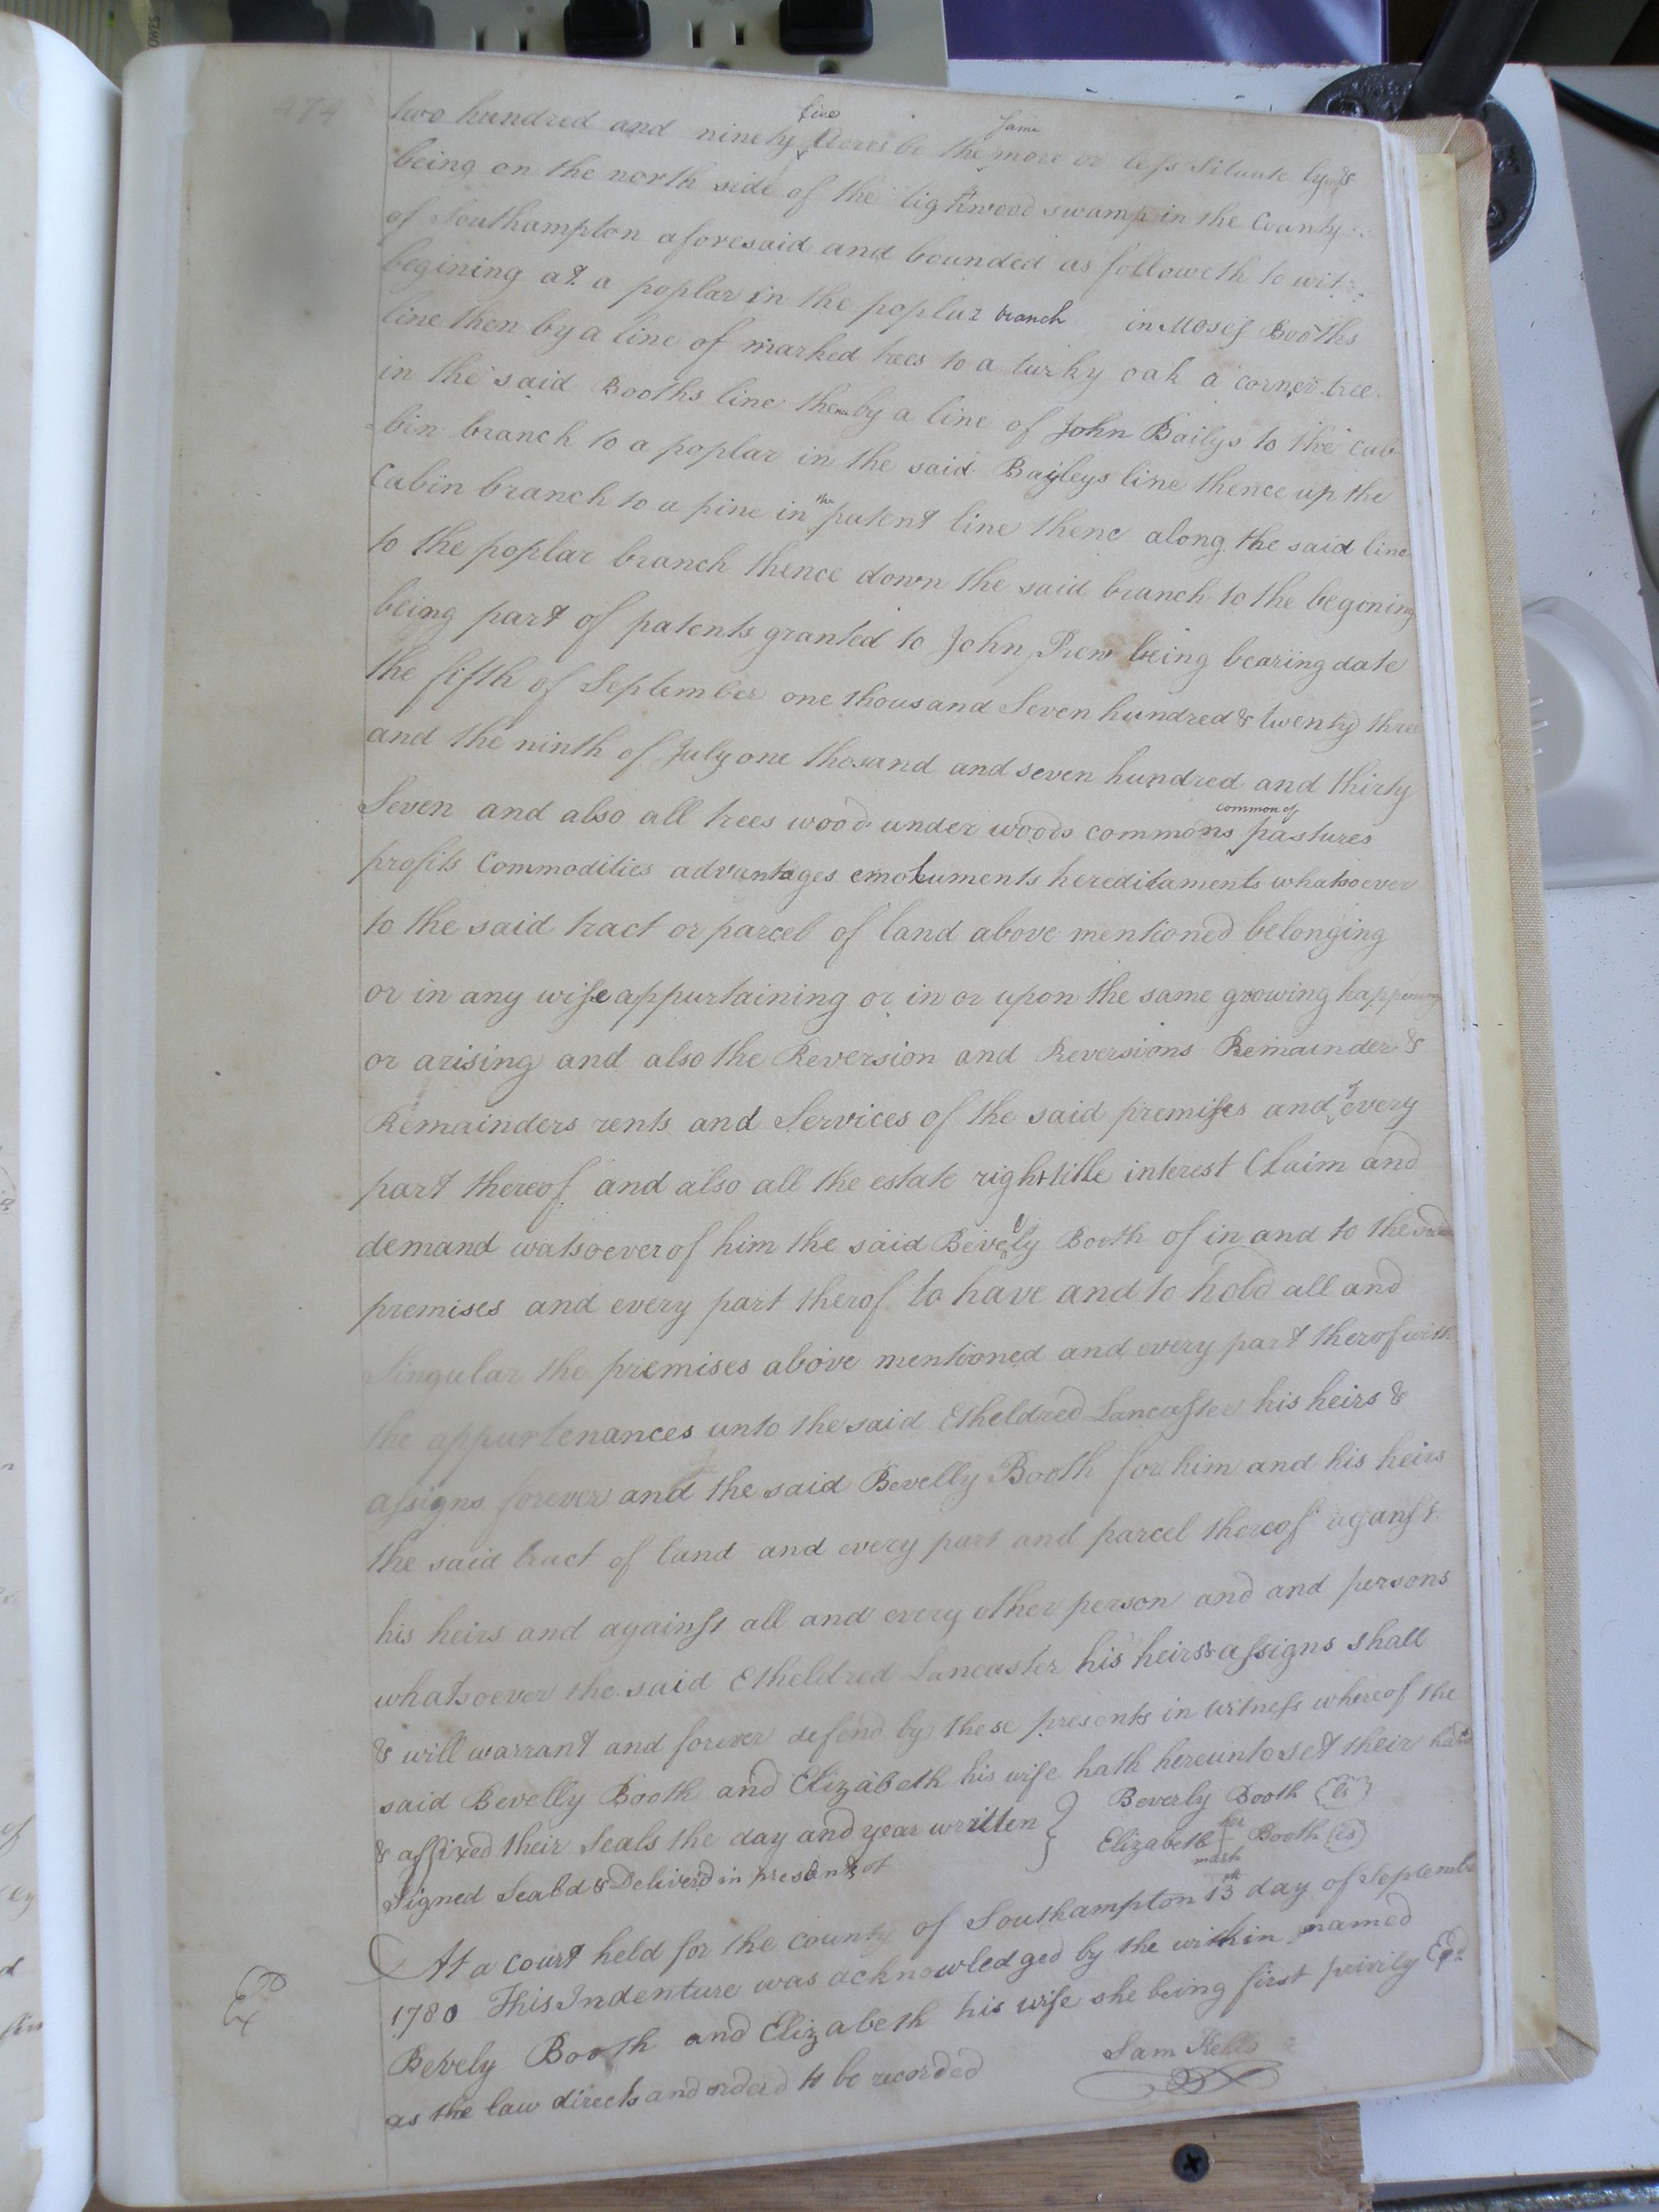 474
two hundred and ninety five Acres be the same more or less Situate lying &
being on the north side of the lightwood swamp in the County
of Southampton aforesaid and bounded as followeth to wit
begining at a poplar in the poplar branch in Moses Booths
line then by a line of marked trees to a turky oak a corner tree
in the said Booths line thence by a line of John Bailys to the cab
=bin branch to a poplar in the said Bayleys line thence up the
Cabin branch to a pine in the patent line thenc along the said line
to the poplar branch thence down the said branch to the begining
being part of patents granted to John being bearing date
the fifth of September one thousand Seven hundred & twenty three
and the ninth of July one thosand and seven hundred and thirty
Seven and also all trees wood under woods commons common of pastures
profits Commodities advantages emoluments hereditaments whatsoever
to the said tract or parcel of land above mentioned belonging
or in any wise appurtaining or in or upon the same growing happening
or arising and also the Reversion and Reversions Remainder &
Remainders rents and Services of the said premises and of every
part thereof and also all the estate right title interest Claim and
demand watsoever of him the said Bevely Booth of in and to the said
premises and every part therof to have and to hold all and
Singular the premises above mentioned and every part therof with
the appurtenances unto the said Etheldred Lancaster his heirs &
assigns forever and the said Bevelly Booth for him and his heirs
the said tract of land and every part and parcel thereof aganst
his heirs and against all and every other person and and persons
whatsoever the said Etheldred Lancaster his heirs & assigns shall
& will warrant and forever defend by these presents in witness whereof the
said Bevelly Booth and Elizabeth his wife hath hereunto set their hands
& affixed their Seals the day and year written } Beverly Booth (ls)
Signed Seald & Deliverd in presents of Elizabeth her mark Booth (ls)
At a Court held for the county of Southampton 13th day of September
1780 This Indenture was acknowledged by the within named
Bevely Booth and Elizabeth his wife she being first privily Exd
as the law directs and orderd to be recorded Sam Kello
Exd